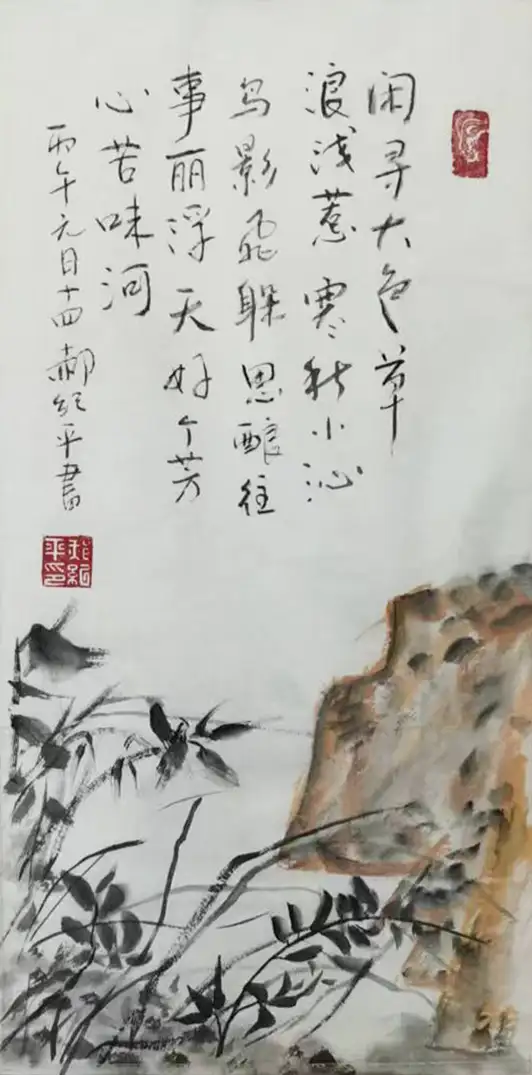 闲寻大色草
浪浅惹寒秋小沁
鸟影飛躲思酿往
事丽浮天好个芳
心苦味河
丙午元月十四郝紀平書